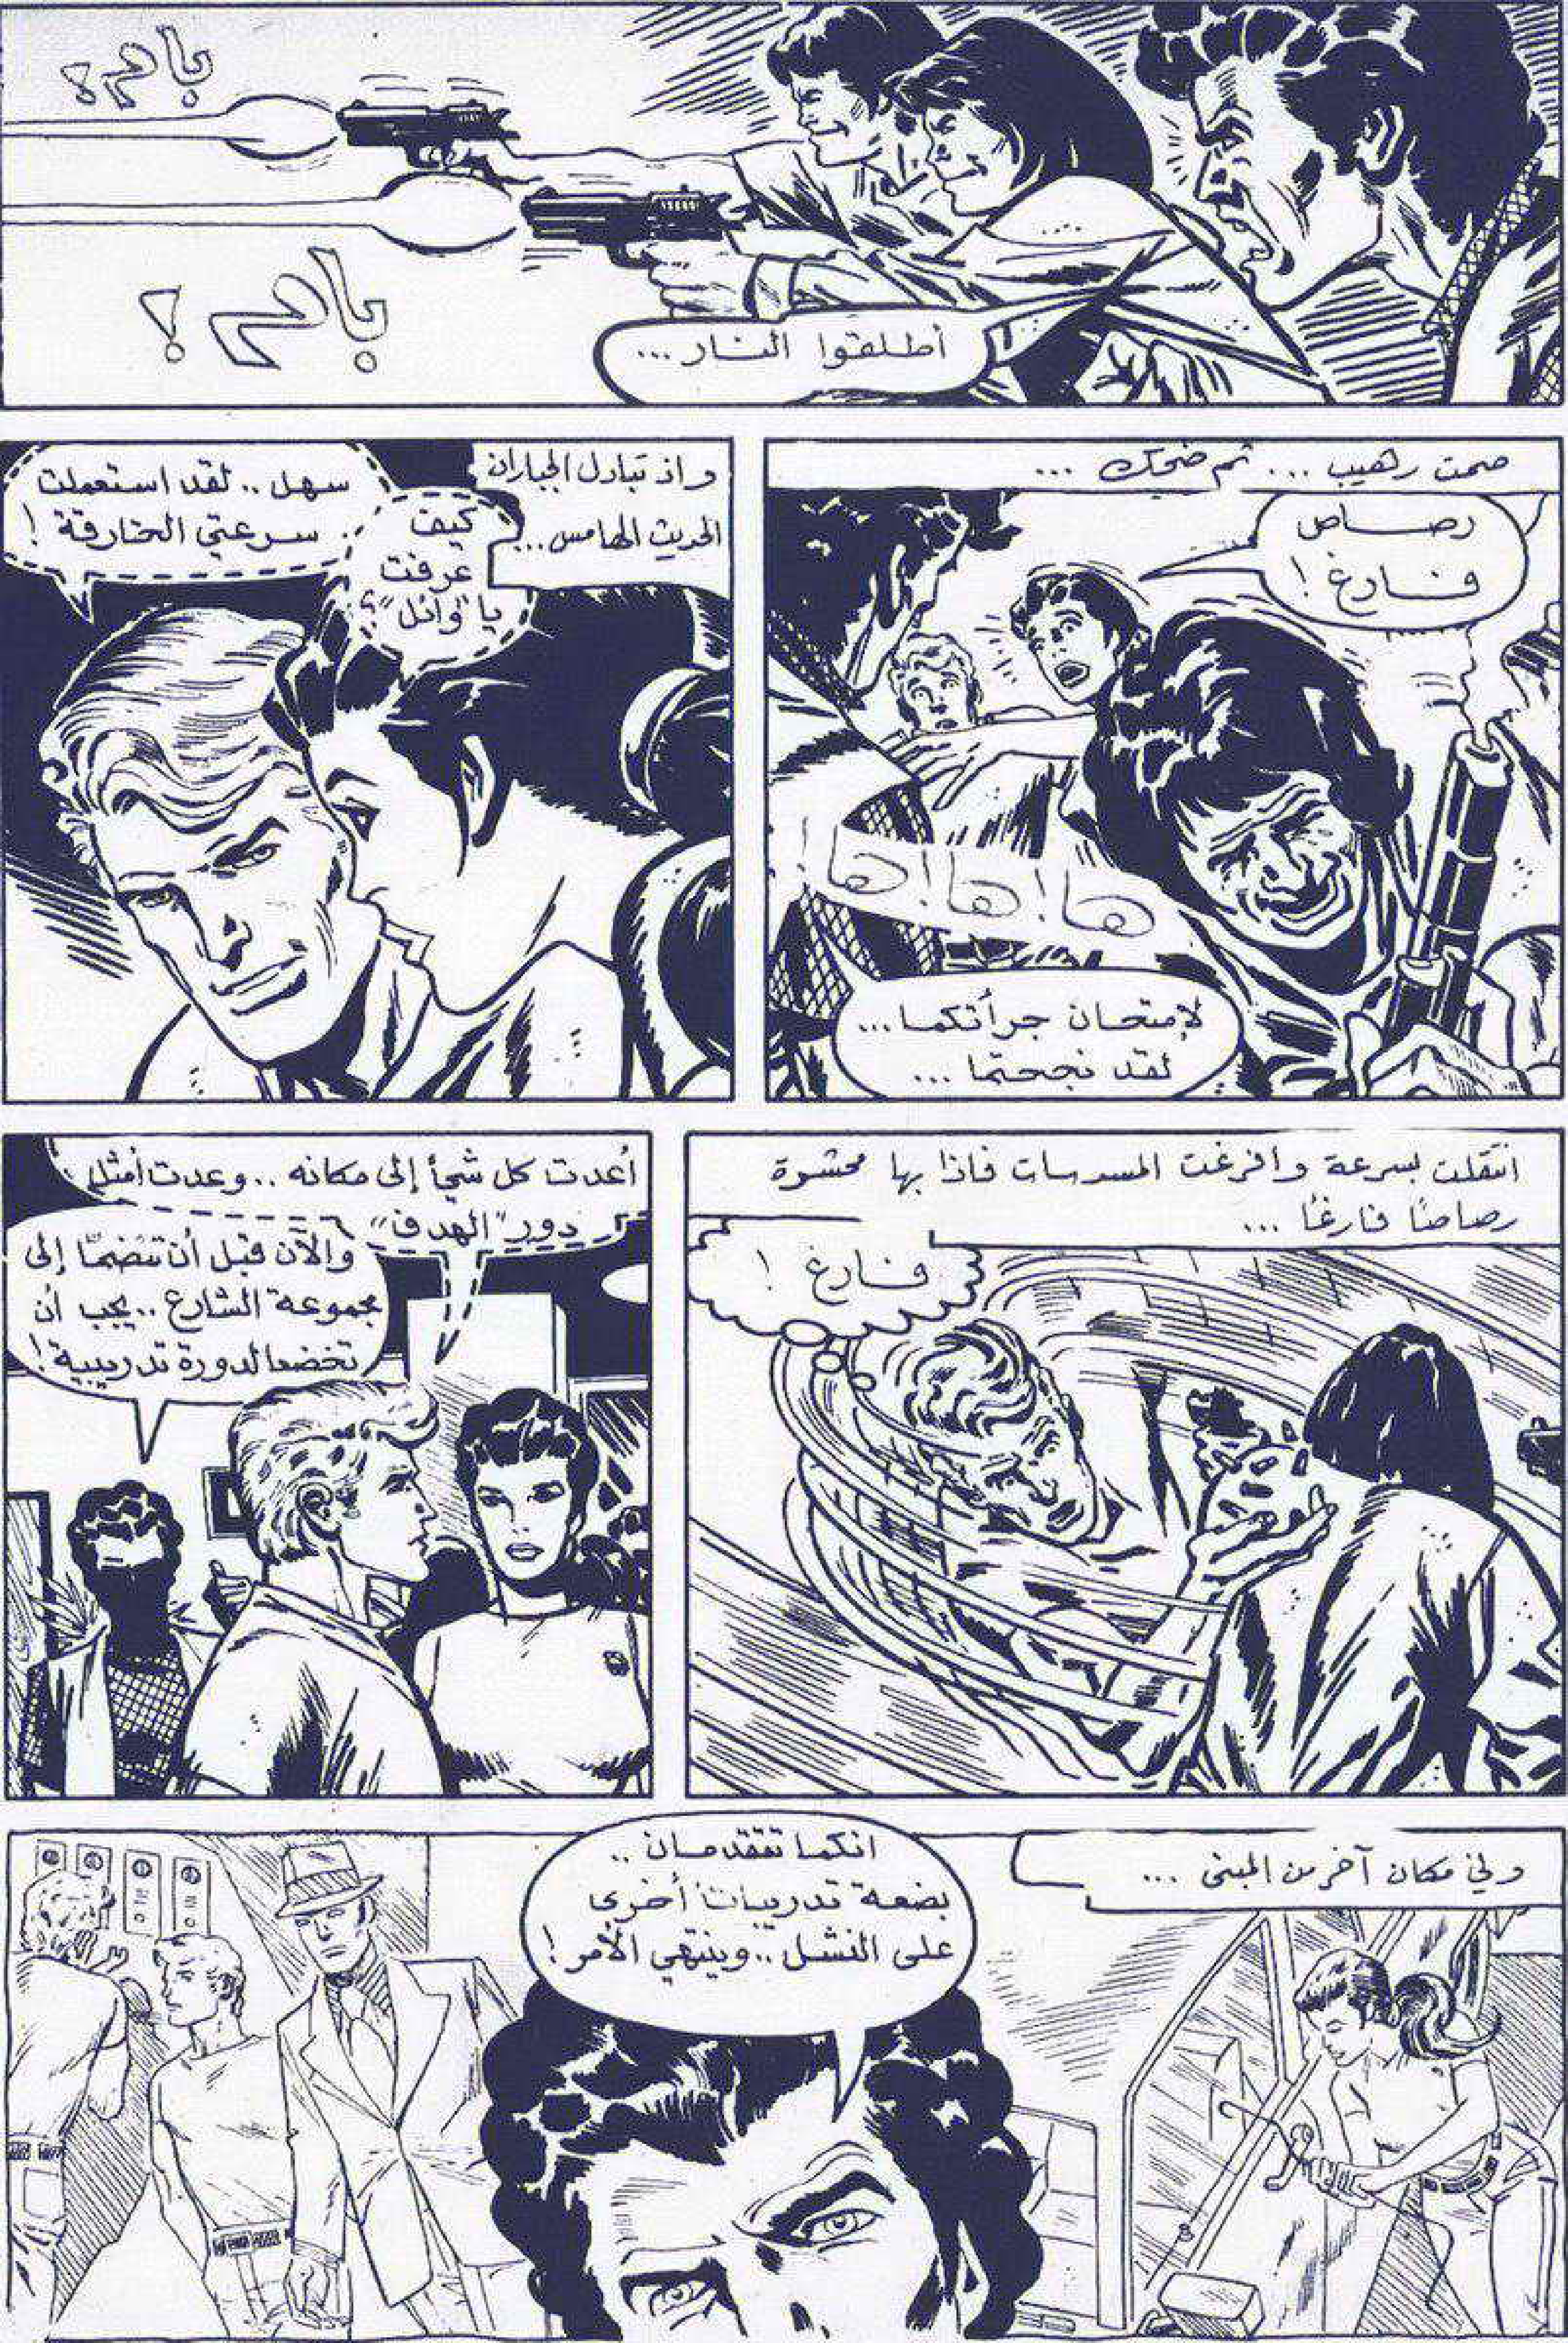 بام!
بام!
أطلقوا النار...
صمت رهيب ... ثم ضحك ...
رصاص
فارغ !
ها! ها! ها!
لإمتحان جرأتكما...
لقد نجحتما ...
واذ تبادل الجباران
الحديث الهامس...
كيف
عرفت
يا "وائل"؟
سهل .. لقد استعملت
سرعتي الخارقة !
انتقلت بسرعة وافرغت المسدسات فاذا بها محشوة
رصاصًا فارغًا ...
فارغ !
أعدت كل شيأ إلى مكانه .. وعدت أمثل
دور "الهدف"
والآن قبل أن تنضمّا إلى
مجموعة الشارع .. يجب أن
تخضعا لدورة تدريبية !
وفي مكان آخر من المبنى ...
انكما تتقدمان ..
بضعة تدريبات أخرى
على النشل .. وينتهي الأمر !